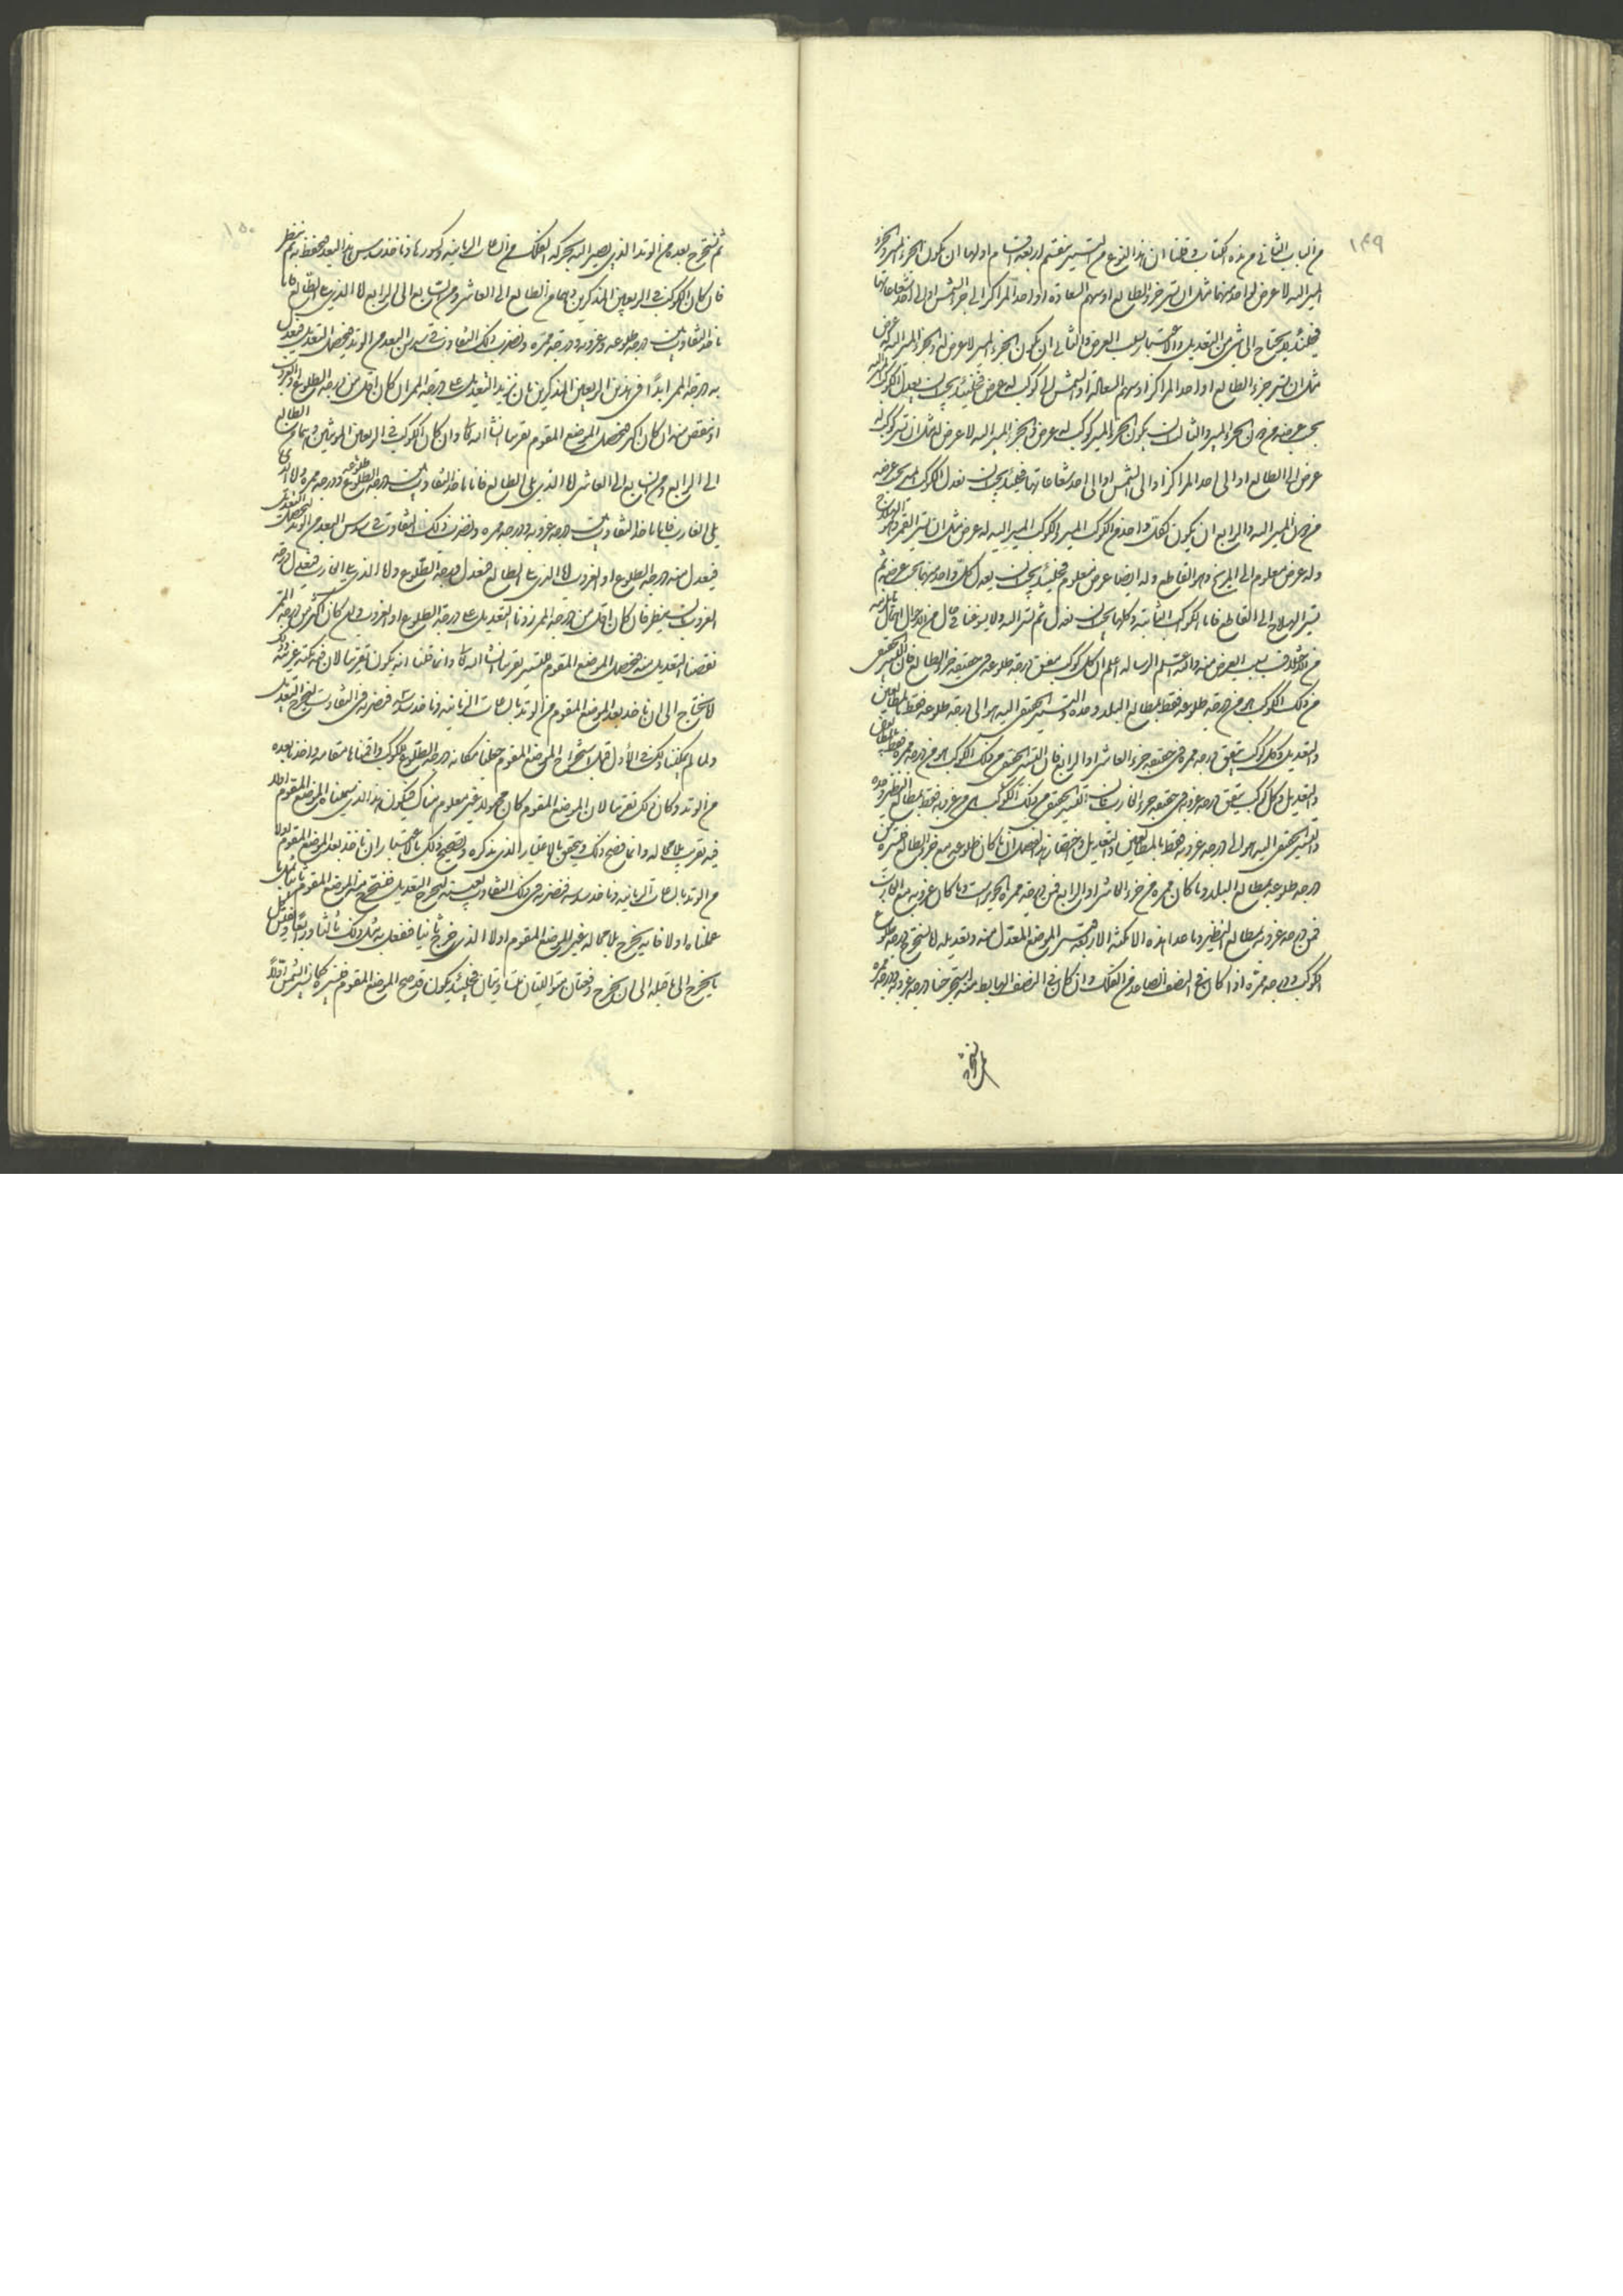 ١٤٩
من الباب الثاني من هذه الكتاب وقلنا ان هذا النوع من التسيير ينقسم اربعة اقسام اولها ان يكون الجزء المسير والجزء
المسير اليه لا عرض لواحد منهما مثل ان نسير جزء الطالع او سهم السعادة او احد المراكز الى جزء الشمس او الى احد شعاعاتها
فحينئذ لا يحتاج الى شئ من التعديل والاعتبار بسبب العرض والثاني ان يكون الجزء المسير لا عرض له والجزء المسير اليه له عرض
مثل ان نسير جزء الطالع او احد المراكز او سهم السعادة او الشمس الى كوكب له عرض فحينئذ يجب ان يعدل الكوكب المسير اليه
بحسب عرضه دون الجزء المسير والثالث ان يكون الجزء المسير كوكب له عرض والجزء المسير اليه لا عرض له مثل ان نسير كوكب له
عرض الى الطالع او الى احد المراكز او الى الشمس او الى احد شعاعاتها فحينئذ يجب ان نعدل الكوكب المسير بحسب عرضه
دون المسير اليه والرابع ان يكون كل واحد من الكوكب المسير والكوكب المسير اليه له عرض مثل ان نسير القمر
وله عرض معلوم الى المريخ وهو القاطع وله ايضا عرض معلوم فحينئذ يجب ان يعدل كل واحد منهما بحسب عرضه ثم
نسير الهيلاج الى القاطع فاما الكواكب الثابتة وكلها يجب ان نعدل ثم نسير اليه ولا يسوغنا في حال من الاحوال
بسبب العرض منه اعلم ان كل كوكب يتفق درجة طلوعه في حقيقة جزء الطالع فان التسيير الحقيقي
من ذلك الكوكب هو من درجة طلوعه فقط بمطالع البلد وحده والتسيير الحقيقي اليه هو الى درجة طلوعه فقط بالمطالعين
والتعديل وكل كوكب يتفق درجة ممره في حقيقة جزء العاشر او الرابع فان التسيير الحقيقي من ذلك الكوكب هو من درجة ممره فقط
والتعديل وكل كوكب يتفق درجة غروبه في حقيقة جزء الغارب فان التسيير الحقيقي من ذلك الكوكب هو من غروبه فقط بمطالع النظير وحده
والتسيير الحقيقي اليه هو الى درجة غروبه فقط بالمطالعين والتعديل واختصار هذا الفصل ان ما كان طلوعه مع جزء الطالع فتسيره من
درجة طلوعه بمطالع البلد وما كان ممره مع جزء العاشر او الرابع فمن درجة ممره وما كان غروبه مع الغارب
فمن درجة غروبه بمطالع النظير وما عدا هذه الامكنة الاربعة تسير الموضع المعدل منه وتعديله ان نستخرج درجة طلوع
الكوكب ودرجة ممره اذا كان في النصف الصاعد من الفلك وان كان في النصف الهابط منه استخرجنا درجة غروبه ودرجة ممره
١٥٠
ثم نستخرج بعده من الوتد الذي يصير اليه بحركة الفلك من الساعات الزمانية وكسورها وناخذ سدس هذا البعد فنحفظه ثم ننظر
فان كان الكوكب في الربعين المذكرين وهما من الطالع الى العاشر ومن السابع الى الرابع اما الذي يلي الطالع فانا
ناخذ التفاوت بين درجة طلوعه ودرجة ممره ونضرب ذلك التفاوت في سدس البعد من الوتد فيحصل التعديل فنعدل
به درجة الممر ابدا في هذين الربعين المذكرين بان نزيد التعديل على درجة الممر ان كان اقل من درجة الطلوع
او ننقص منه ان كان اكثر فيحصل الموضع المقوم تقريبا ان شاء الله تعالى وان كان الكوكب في الربعين المؤنثين وهما من الطالع
الى الرابع ومن السابع الى العاشر اما الذي يلي الطالع فانا ناخذ التفاوت بين درجة طلوعه ودرجة ممره واما الذي
يلي الغارب فانا ناخذ التفاوت بين درجة غروبه ودرجة ممره ونضرب ذلك التفاوت في سدس البعد من الوتد فيحصل التعديل
فيعدل منه درجة الطلوع او الغروب اما الذي يلي الطالع فنعدل درجة الطلوع واما الذي يلي الغارب فنعدل درجة
الغروب بان ينظر فان كان اقل من درجة الممر زدنا التعديل على درجة الطلوع او الغروب وان كان اكثر من درجة الممر
نقصنا التعديل منه فيحصل الموضع المقوم للتسيير تقريبا ان شاء الله تعالى وانما قلنا انه يكون تقريبا لان فيه نكتة غريبة
لانا نحتاج الى ان ناخذ بعد الموضع المقوم من الوتد بالساعات الزمانية وناخذ سدسه فنضربه في التفاوت ليخرج التعديل
ولما لم يمكننا ذلك في الاول قبل استخراج الموضع المقوم جعلنا مكانه درجة الطلوع للكوكب واقمناها مقامه واخذنا بعده
من الوتد وكان ذلك تقريبا لان الموضع المقوم كان مجهولا غير معلوم هناك فيكون هذا الذي سميناه الموضع المقوم اولا
فيه تقريب لا محالة وانما يصح ذلك ويتحقق بالاعتبار الذي نذكره وتصحيح ذلك بالاعتبار ان ناخذ بعد الموضع المقوم اولا
من الوتد بالساعات الزمانية وناخذ سدسه فنضربه في ذلك التفاوت بعينه ليخرج التعديل فنستخرج منه الموضع المقوم ثانيا مثل ما
عملناه اولا فانه يخرج لا محالة غير الموضع المقوم اولا الذي خرج ثانيا فنفعل به مثل ذلك ثالثا ورابعا ونقيس
ما يخرج الى ما قبله الى ان يخرج دفعتان متواليتان متساويتان فحينئذ يكون قد صح الموضع المقوم فنسيره كما نسير الشمس